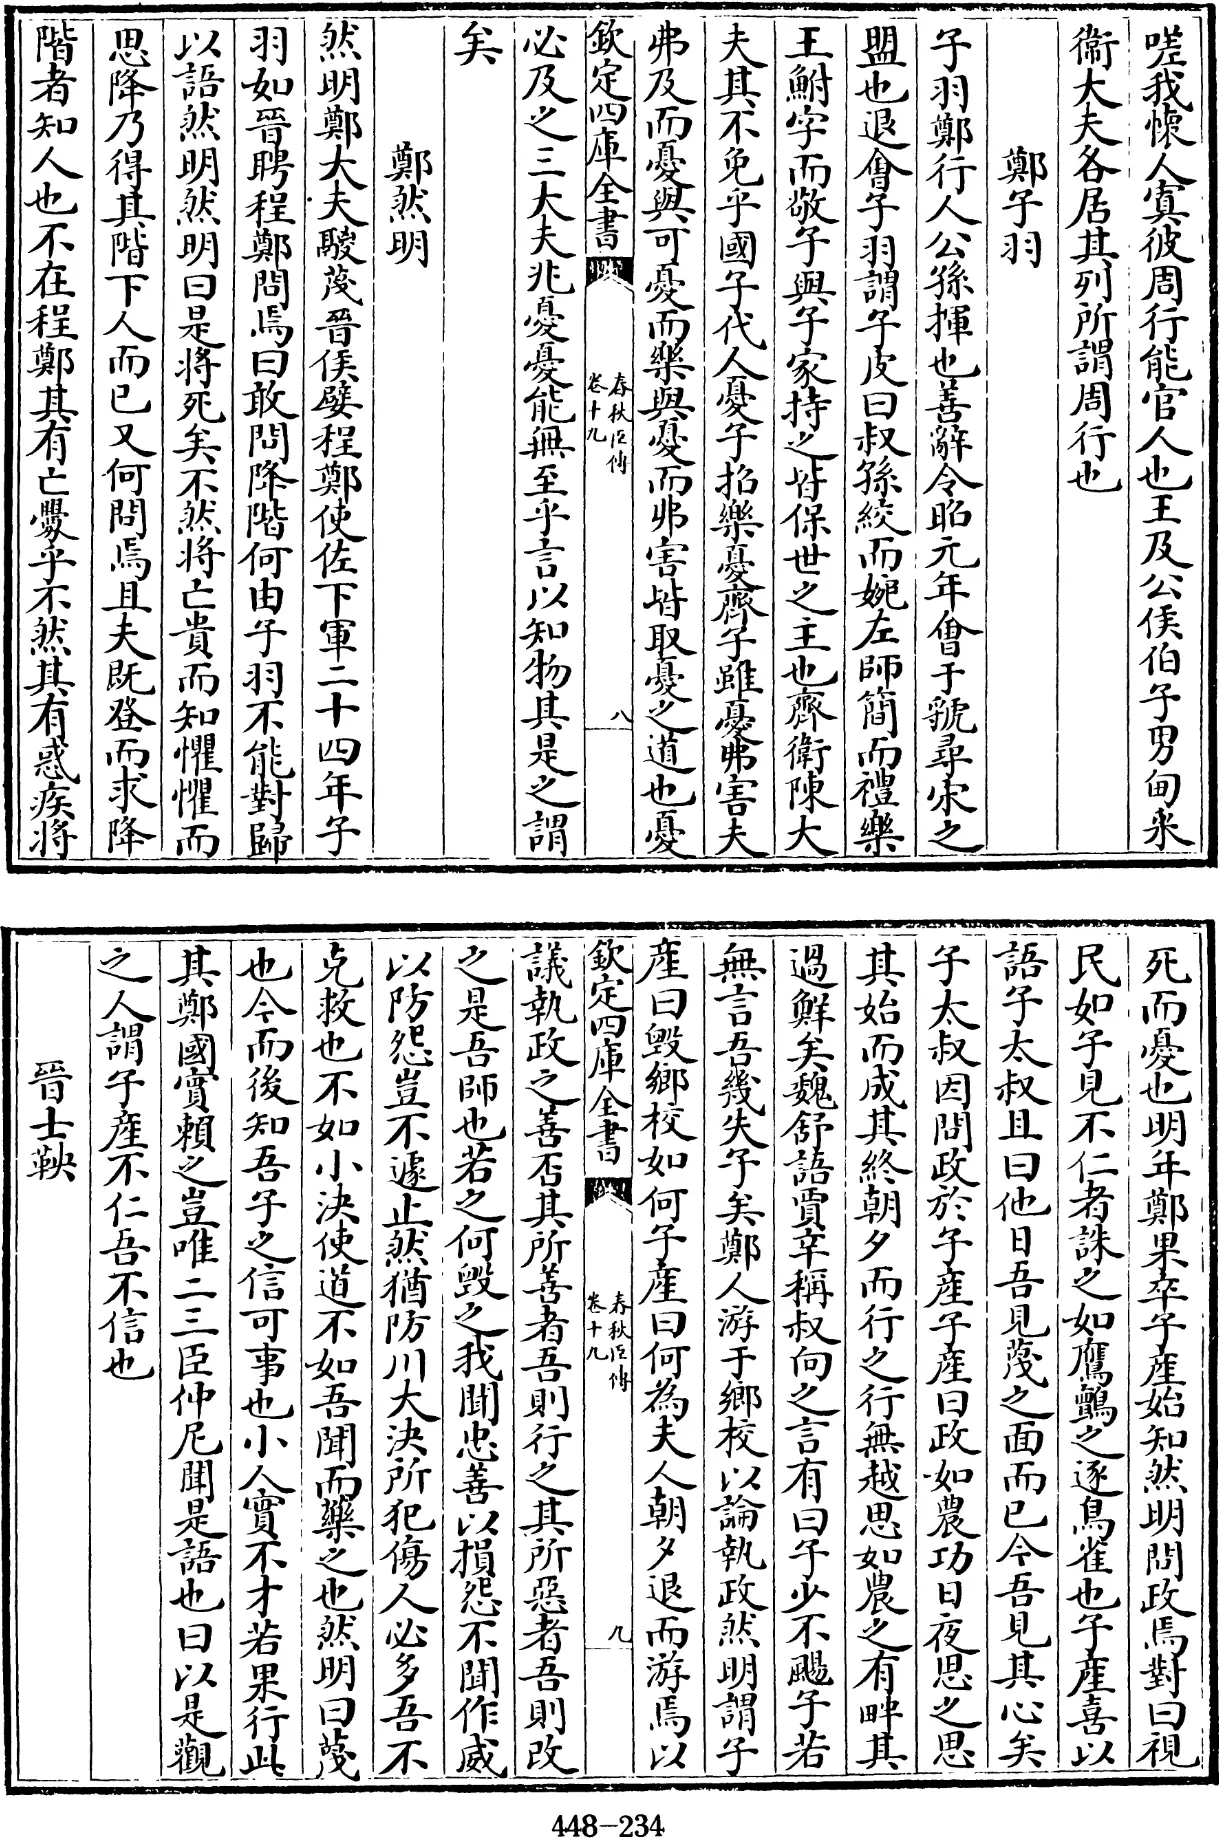 嗟我懷人寘彼周行能官人也王及公侯伯子男甸采
衞大夫各居其列所謂周行也
鄭子羽
子羽鄭行人公孫揮也善辭令昭元年會于虢尋宋之
盟也退會子羽謂子皮曰叔孫絞而婉左師簡而禮樂
王鮒字而敬子與子家持之皆保世之主也齊衛陳大
夫其不免乎國子代人憂子招樂憂齊子雖憂弗害夫
弗及而憂與可憂而樂與憂而弗害皆取憂之道也憂
欽定四庫全書
春秋臣傳
卷十九
八
必及之三大夫兆憂憂能無至乎言以知物其是之謂
矣
鄭然明
然明鄭大夫鬷蔑晉侯嬖程鄭使佐下軍二十四年子
羽如晉聘程鄭問焉曰敢問降階何由子羽不能對歸
以語然明然明曰是將死矣不然將亡貴而知懼懼而
思降乃得其階下人而已又何問焉且夫既登而求降
階者知人也不在程鄭其有亡釁乎不然其有惑疾將
死而憂也明年鄭果卒子產始知然明問政焉對曰視
民如子見不仁者誅之如鷹鸇之逐鳥雀也子產喜以
語子太叔且曰他日吾見蔑之面而已今吾見其心矣
子太叔因問政於子產子產曰政如農功日夜思之思
其始而成其終朝夕而行之行無越思如農之有畔其
過鮮矣魏舒語賈辛稱叔向之言有曰子少不颺子若
無言吾幾失子矣鄭人游于鄉校以論執政然明謂子
產曰毀鄉校如何子產曰何為夫人朝夕退而游焉以
欽定四庫全書
春秋臣傳
卷十九
九
議執政之善否其所善者吾則行之其所惡者吾則改
之是吾師也若之何毀之我聞忠善以損怨不聞作威
以防怨豈不遽止然猶防川大決所犯傷人必多吾不
克救也不如小決使道不如吾聞而藥之也然明曰蔑
也今而後知吾子之信可事也小人實不才若果行此
其鄭國實賴之豈唯二三臣仲尼聞是語也曰以是觀
之人謂子產不仁吾不信也
晉士鞅
448-234